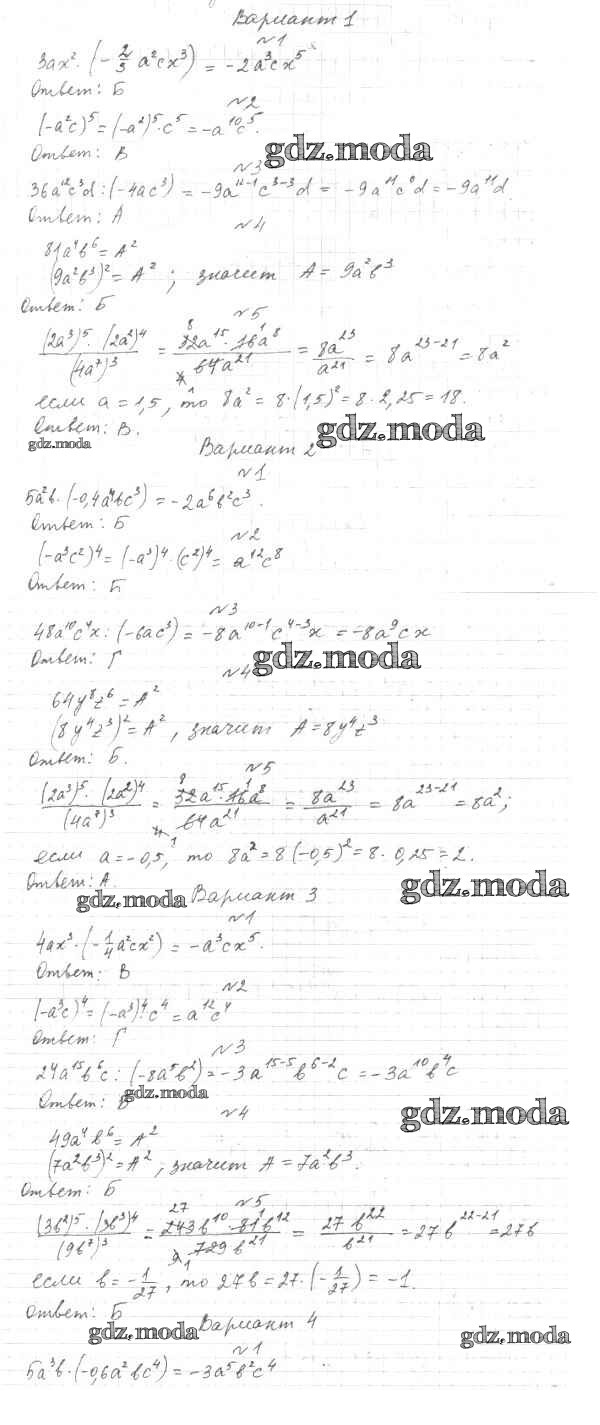 Вариант 1
№1
3ax². (-2/3 a²cx³) = -2a³cx⁵
Ответ: Б
№2
(-a²c)⁵ = (-a²)⁵·c⁵ = -a¹⁰c⁵.
Ответ: В
gdz.moda
№3
36a¹²c³d : (-4ac³) = -9a¹²⁻¹c³⁻³d = -9a¹¹c⁰d = -9a¹¹d.
Ответ: А
№4
81a⁴b⁶ = A²
(9a²b³)² = A² ; значит A = 9a²b³
Ответ: Б
№5
(2a³)⁵·(2a²)⁴/(4a⁷)³ = 32a¹⁵·16a⁸/64a²¹ = 8a²³/a²¹ = 8a²³⁻²¹ = 8a²
если a = 1,5, то 8a² = 8·(1,5)² = 8·2,25 = 18.
Ответ: В.
gdz.moda
gdz.moda
Вариант 2
№1
5a²b·(-0,4a⁴bc³) = -2a⁶b²c³.
Ответ: Б
№2
(-a³c²)⁴ = (-a³)⁴·(c²)⁴ = a¹²c⁸
Ответ: Б
№3
48a¹⁰c⁴x : (-6ac³) = -8a¹⁰⁻¹c⁴⁻³x = -8a⁹cx
Ответ: Г
gdz.moda
№4
64y⁸z⁶ = A²
(8y⁴z³)² = A², значит A = 8y⁴z³
Ответ: Б.
№5
(2a³)⁵·(2a²)⁴/(4a⁷)³ = 32a¹⁵·16a⁸/64a²¹ = 8a²³/a²¹ = 8a²³⁻²¹ = 8a²;
если a = -0,5, то 8a² = 8(-0,5)² = 8·0,25 = 2.
Ответ: А.
gdz.moda
gdz.moda
Вариант 3
№1
4ax³·(-1/4 a²cx²) = -a³cx⁵.
Ответ: В
№2
(-a³c)⁴ = (-a³)⁴·c⁴ = a¹²c⁴
Ответ: Г
№3
24a¹⁵b⁶c : (-8a⁵b²) = -3a¹⁵⁻⁵b⁶⁻²c = -3a¹⁰b⁴c
Ответ: В
gdz.moda
gdz.moda
№4
49a⁴b⁶ = A²
(7a²b³)² = A², значит A = 7a²b³.
Ответ: Б
№5
(3b²)⁵·(3b³)⁴/(9b⁷)³ = 243b¹⁰·81b¹²/729b²¹ = 27b²²/b²¹ = 27b²²⁻²¹ = 27b
если b = -1/27, то 27b = 27·(-1/27) = -1.
Ответ: Б
gdz.moda
Вариант 4
gdz.moda
№1
5a³b·(-0,6a²bc⁴) = -3a⁵b²c⁴